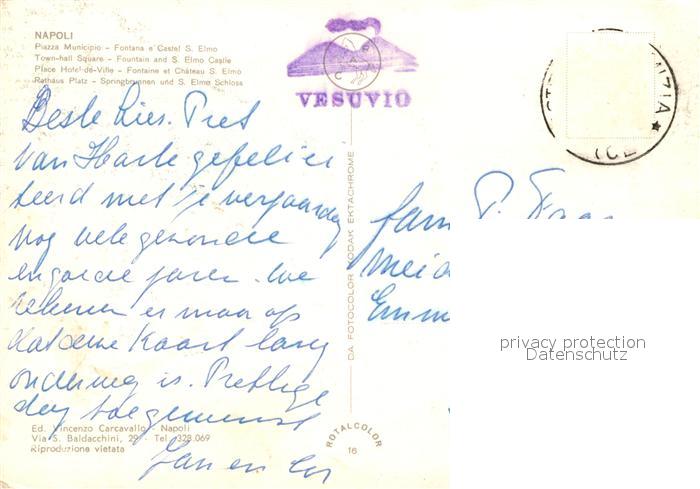 NAPOLI
Piazza Municipio - Fontana e Castel S. Elmo
Town-hall Square - Fountain and S. Elmo Castle
Place Hotel-de-Ville - Fontaine et Château S. Elmo
Rathaus Platz - Springbrunnen und S. Elmo Schloss
VESUVIO
Beste Lies. Piet
van Harte gefelici
teerd met je verjaardag
nog vele gezonde
en goede jaren. We
rekenen er maar op
dat deze Kaart lang
onderweg is. Prettige
dag toegewenst
Jan en Cor
DA FOTOCOLOR KODAK EKTACHROME
ROTALCOLOR
16
Fam P.
Meid
Emm
privacy protection
Datenschutz
Ed. Vincenzo Carcavallo - Napoli
Via S. Baldacchini, 29 - Tel. 328.069
Riproduzione vietata